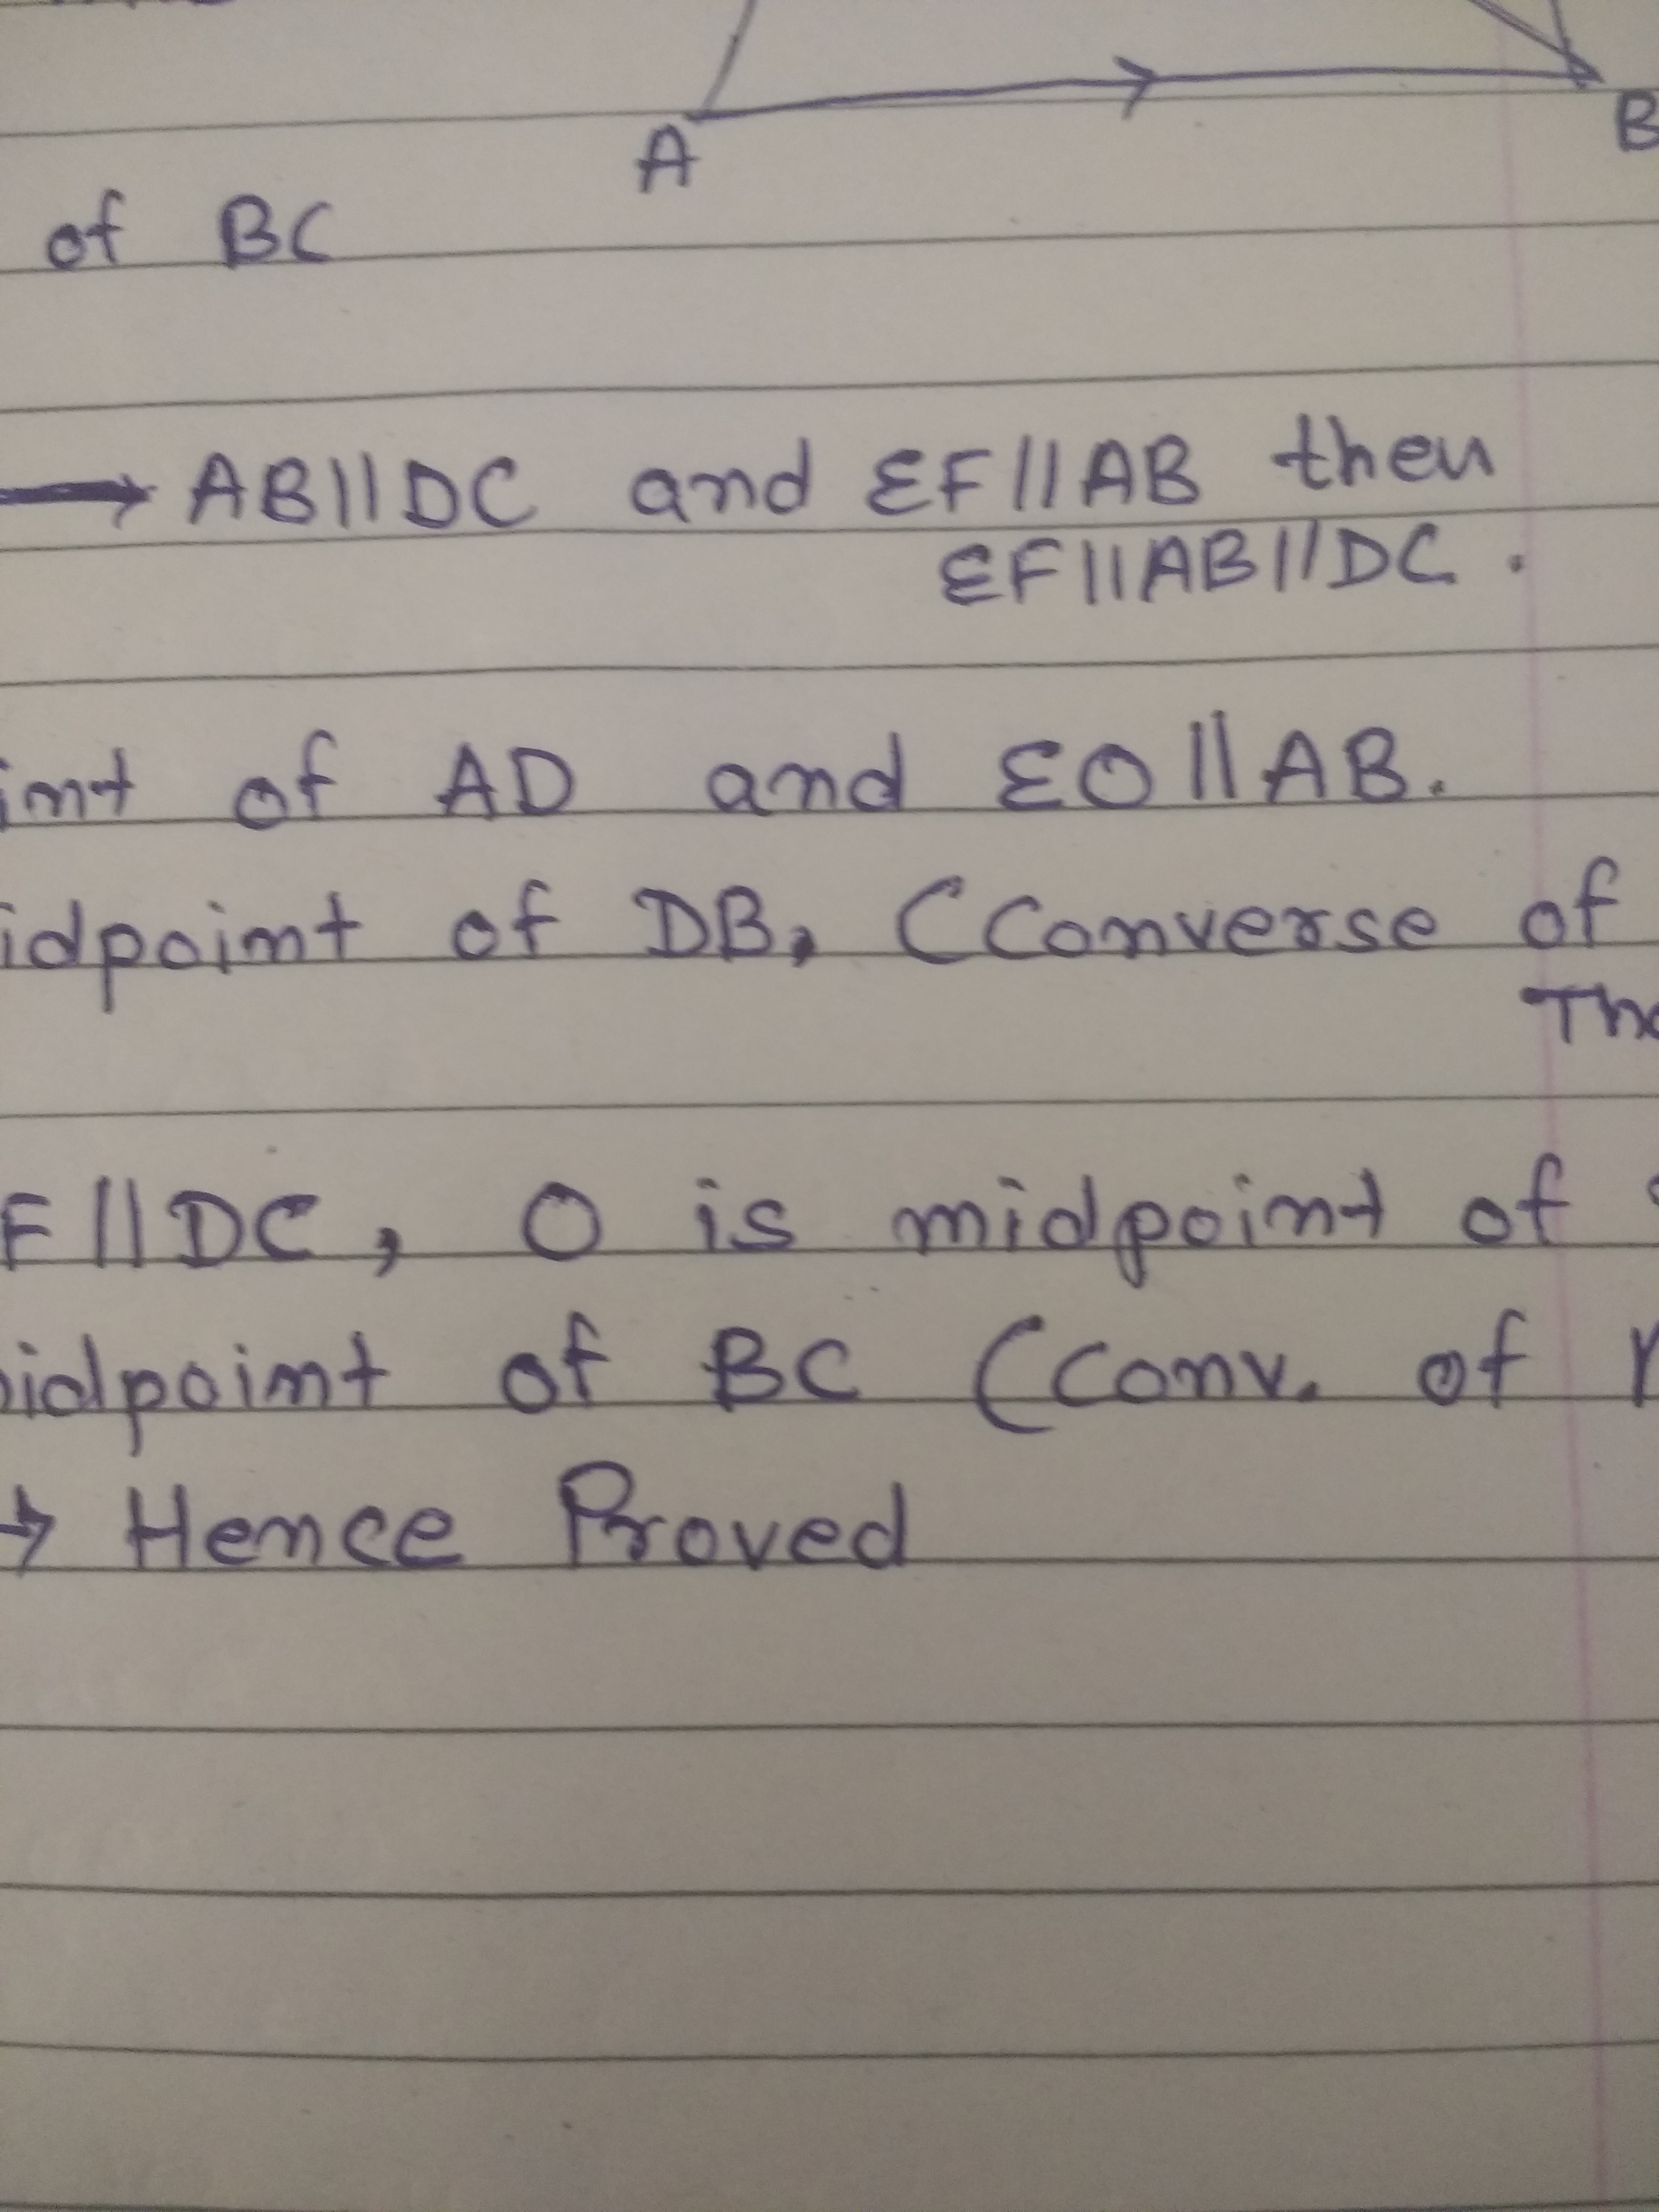 A
B
of BC
→ AB||DC and EF||AB then
EF||AB||DC.
int of AD and EO||AB.
idpoint of DB, (Converse of
The
F||DC, O is midpoint of
idpoint of BC (Conv. of
→ Hence Proved